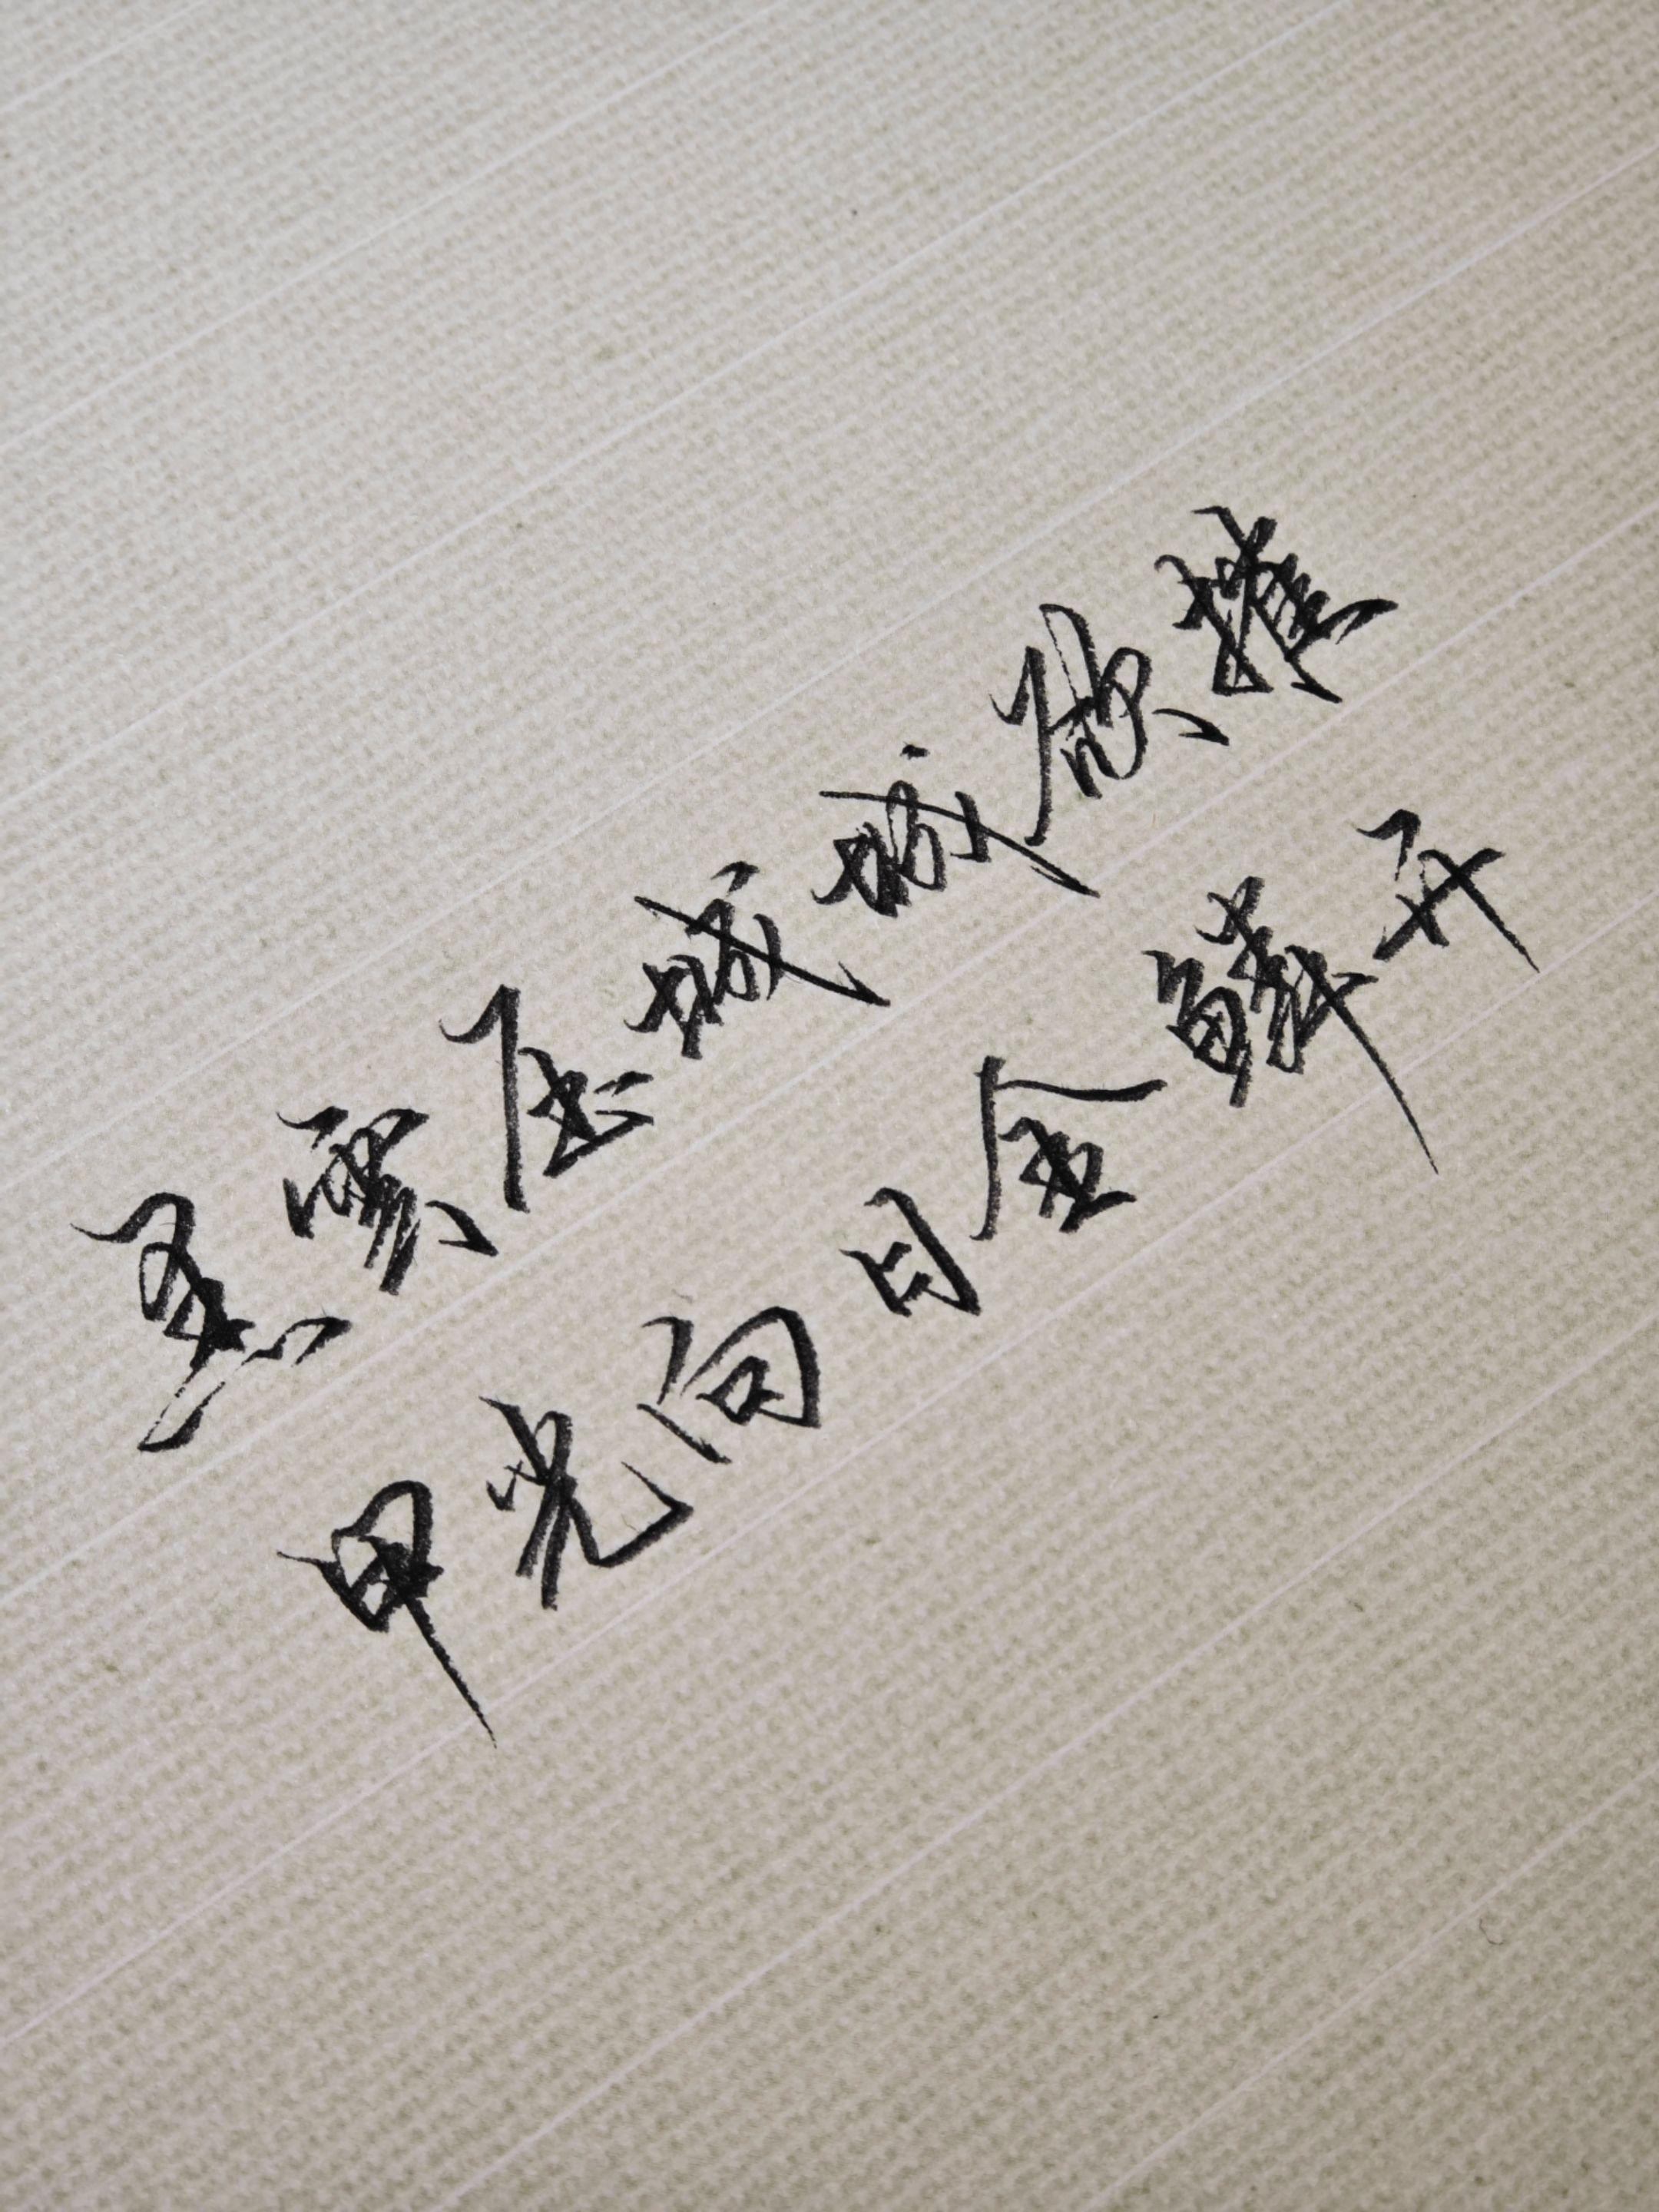 黑雲压城城欲摧
甲光向日金鳞开